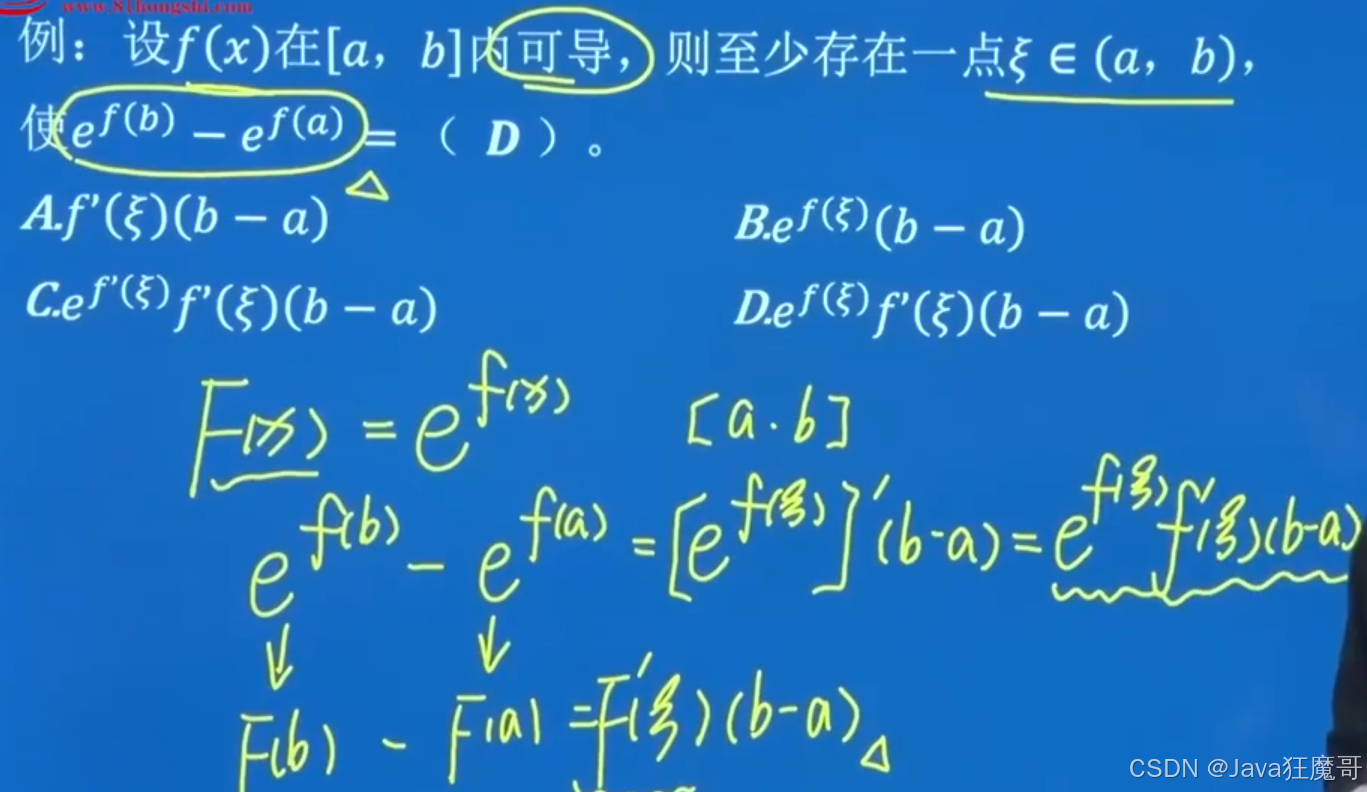 www.81hongshi.com
例：设f(x)在[a，b]内可导，则至少存在一点ξ∈(a，b)，
使e^{f(b)} − e^{f(a)} = （ D ）。
A.f'(ξ)(b − a)
B.e^{f(ξ)}(b − a)
C.e^{f'(ξ)}f'(ξ)(b − a)
D.e^{f(ξ)}f'(ξ)(b − a)
F(x) = e^{f(x)} [a.b]
e^{f(b)} − e^{f(a)} = [e^{f(ξ)}]'(b-a) = e^{f(ξ)}f'(ξ)(b-a)
F(b) - F(a) = F'(ξ)(b-a)
CSDN @Java狂魔哥